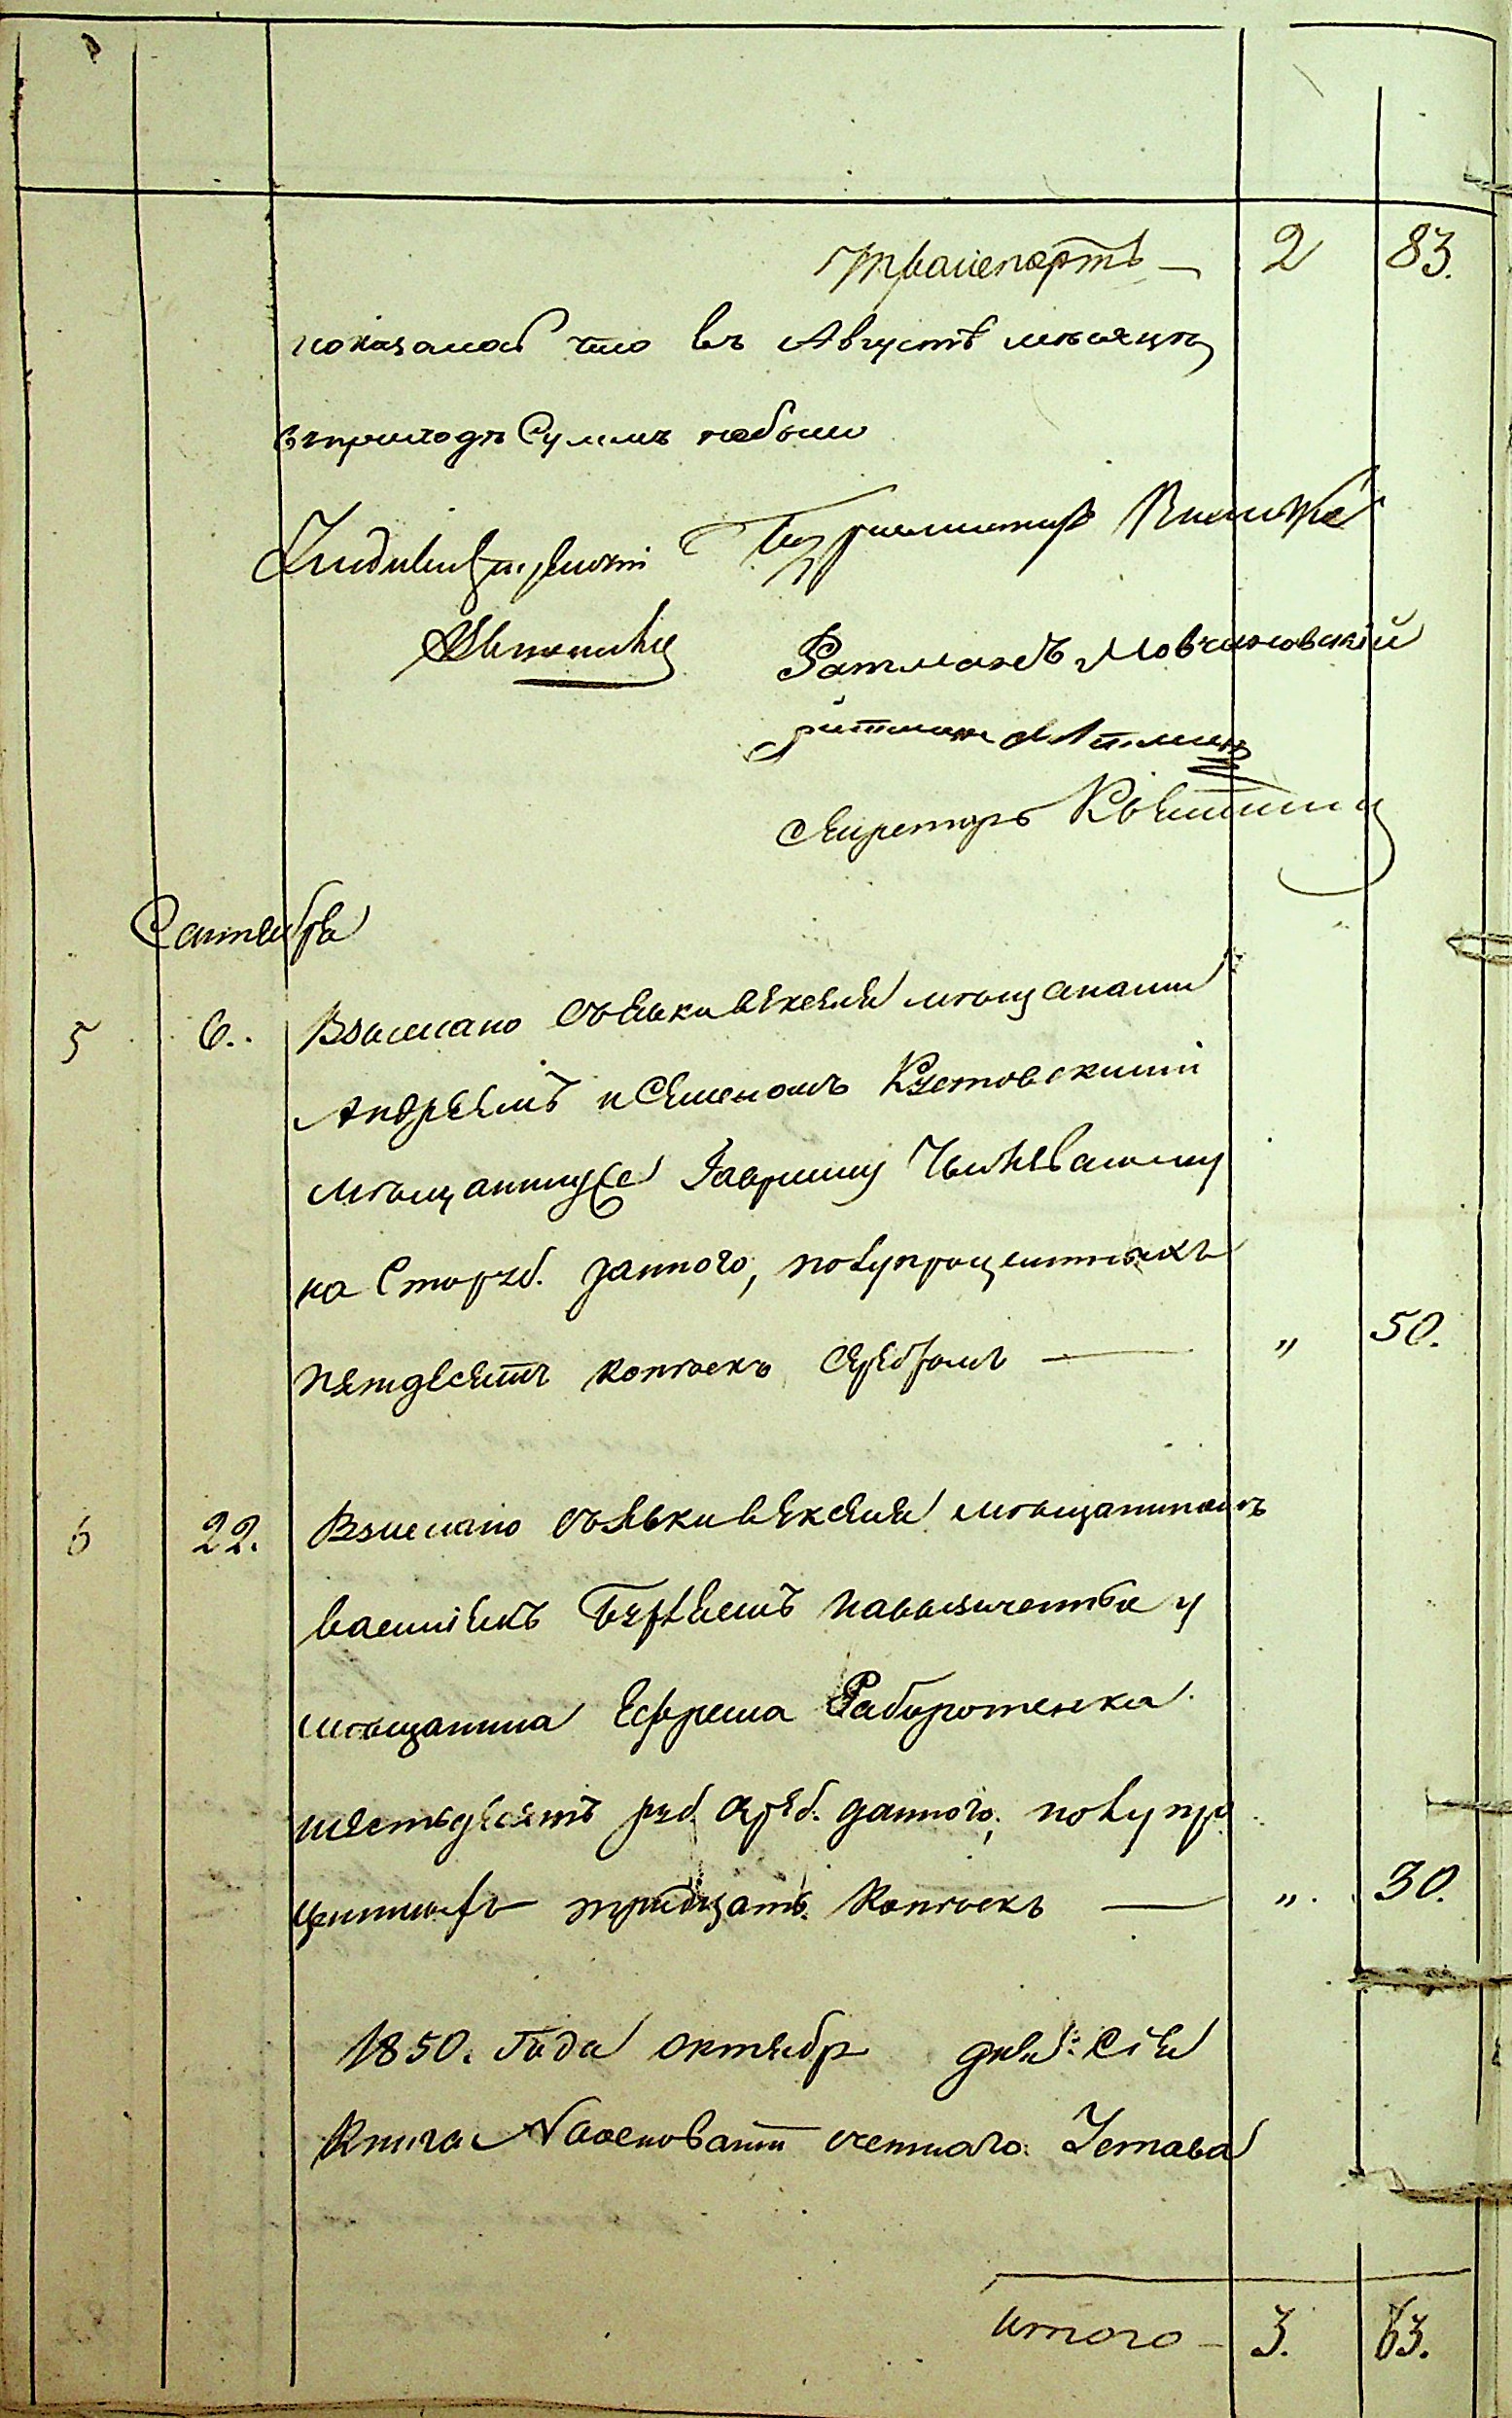 транспортъ — 2 83.
показалось что въ Августѣ мѣсяцѣ
въ приходѣ Суммъ небыло
Бургомистръ
Ратманъ Мовчановскій
ратманъ
Секретарь
Сентября
5 6. Взыскано съявки векселя мѣщанами
Андреемъ и Семеномъ Кустовскими
мѣщанину Гавриилу
на Сто руб. даннаго, полупроцентныхъ
пятдесятъ копѣекъ серебромъ — „ 50.
6 22. Взыскано съявки векселя мѣщаниномъ
василіемъ
мѣщанина Ефрема
шестьдесятъ руб. сереб. даннаго, полупро
центныхъ тридцать Копѣекъ — „ 30.
1850. Года октября дня: Сія
Книга счетнаго Устава
итого — 3. 63.